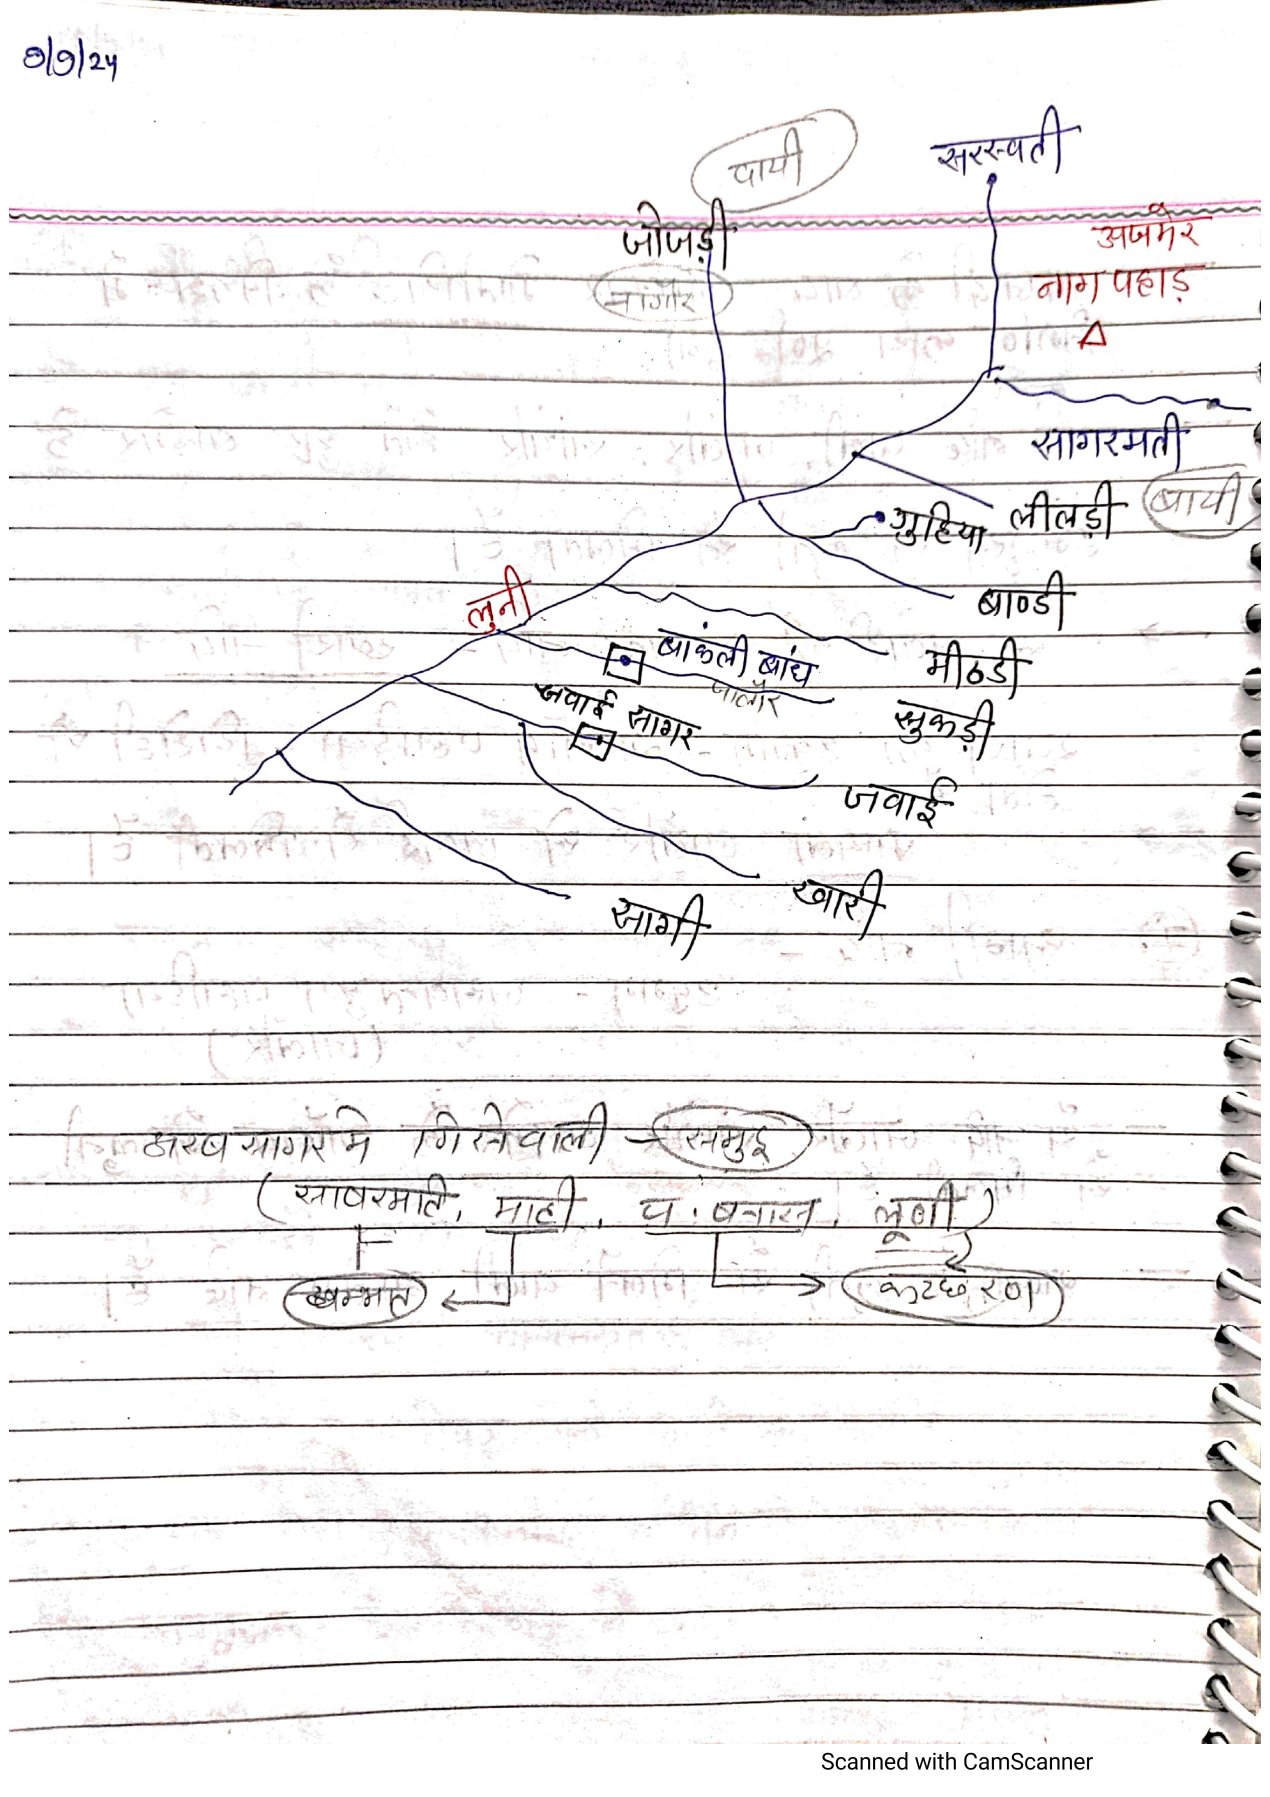 9/9/24
दायी
सरस्वती
जोजड़ी
अजमेर
नागौर
नाग पहाड़
सागरमती
लीलड़ी
बायी
गुहिया
बाण्डी
लुनी
बांकली बांध
मीठडी
जालौर
जवाई सागर
सुकड़ी
जवाई
खारी
सागी
अरब सागर मे गिरने वाली -
(साबरमति, माही, प. बनास, लूणी)
खम्भात
कच्छ रण
Scanned with CamScanner